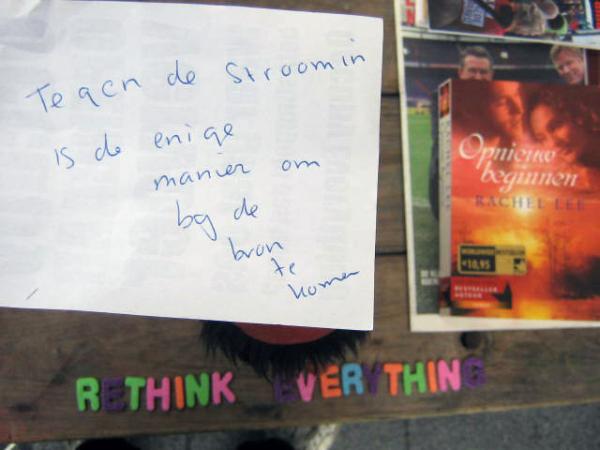 Tegen de Stroom in
is de enige
manier om
bij de
bron
te
komen
Opnieuw
beginnen
RACHEL LEE
€10,95
BESTSELLER
RETHINK EVERYTHING